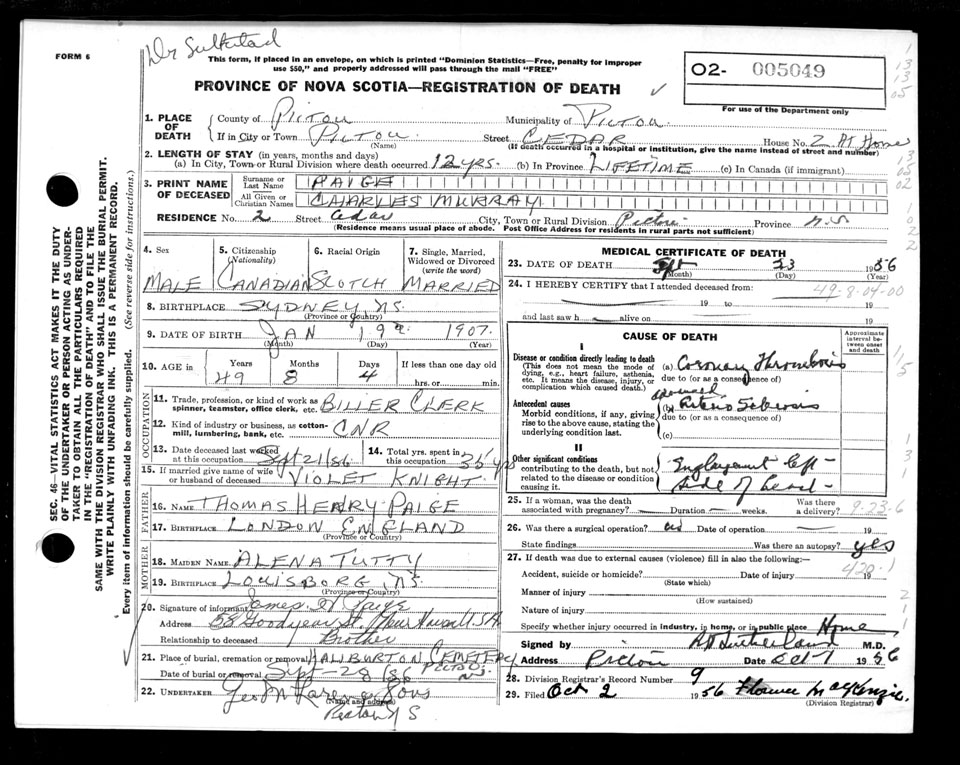 FORM 6
Dr
This form, if placed in an envelope, on which is printed "Dominion Statistics—Free, penalty for improper
use $50," and properly addressed will pass through the mail "FREE"
O2- 005049
For use of the Department only
PROVINCE OF NOVA SCOTIA—REGISTRATION OF DEATH
1. PLACE OF DEATH
County of PICTOU Municipality of PICTOU
(If in City or Town PICTOU Street CEDAR House No. 2 At Home
(Name) (If death occurred in a hospital or institution, give the name instead of street and number)
2. LENGTH OF STAY (in years, months and days)
(a) In City, Town or Rural Division where death occurred 12 yrs. (b) In Province LIFETIME (c) In Canada (if immigrant)
3. PRINT NAME OF DECEASED
Surname or Last Name PAIGE
All Given or Christian Names CHARLES MURRAY
RESIDENCE No. 2 Street Cedar City, Town or Rural Division Pictou Province N.S.
(Residence means usual place of abode. Post Office Address for residents in rural parts not sufficient)
SEC. 46 - VITAL STATISTICS ACT MAKES IT THE DUTY
OF THE UNDERTAKER OR PERSON ACTING AS UNDER-
TAKER TO OBTAIN ALL THE PARTICULARS REQUIRED
IN THE "REGISTRATION OF DEATH" AND TO FILE THE
SAME WITH THE DIVISION REGISTRAR WHO SHALL ISSUE THE BURIAL PERMIT.
WRITE PLAINLY WITH UNFADING INK. THIS IS A PERMANENT RECORD.
Every item of information should be carefully supplied. (See reverse side for instructions.)
4. Sex 5. Citizenship (Nationality) 6. Racial Origin 7. Single, Married, Widowed or Divorced (write the word)
MALE CANADIAN SCOTCH MARRIED
8. BIRTHPLACE SYDNEY NS.
(Province or Country)
9. DATE OF BIRTH JAN 19 1907.
(Month) (Day) (Year)
10. AGE in Years Months Days If less than one day old
49 8 4 hrs. or min.
OCCUPATION
11. Trade, profession, or kind of work as
spinner, teamster, office clerk, etc. BILLER CLERK
12. Kind of industry or business, as cotton-
mill, lumbering, bank, etc. CNR
13. Date deceased last worked
at this occupation Sept 21/56
14. Total yrs. spent in
this occupation 35 yrs
15. If married give name of wife
or husband of deceased VIOLET KNIGHT
FATHER
16. NAME THOMAS HENRY PAIGE
17. BIRTHPLACE LONDON ENGLAND
(Province or Country)
MOTHER
18. MAIDEN NAME ALENA TUTTY
19. BIRTHPLACE LOUISBORG, NS.
(Province or Country)
20. Signature of informant James Paige
Address 58 Goodyear St. New Haven
Relationship to deceased Brother
21. Place of burial, cremation or removal HALIBURTON CEMETERY
PICTOU NS.
Date of burial or removal Sept-28/56
22. UNDERTAKER Geo M & Sons
(Name and address)
Pictou N S
MEDICAL CERTIFICATE OF DEATH
23. DATE OF DEATH Sept 23 1956
(Month) (Day) (Year)
24. I HEREBY CERTIFY that I attended deceased from:
49-8-04-00
19 to 19
and last saw h alive on 19
CAUSE OF DEATH
Approximate interval between onset and death
I
Disease or condition directly leading to death
(This does not mean the mode of dying, e.g., heart failure, asthenia, etc. It means the disease, injury, or complication which caused death.)
(a) Coronary Thrombosis
due to (or as a consequence of)
Antecedent causes
Morbid conditions, if any, giving rise to the above cause, stating the underlying condition last.
(b)
due to (or as a consequence of)
(c)
II
Other significant conditions
contributing to the death, but not related to the disease or condition causing it.
left
side of heart
25. If a woman, was the death
associated with pregnancy? Duration weeks. Was there a delivery?
9-23-6
26. Was there a surgical operation? no Date of operation 19
State findings Was there an autopsy? yes
27. If death was due to external causes (violence) fill in also the following:
420.1
Accident, suicide or homicide? Date of injury 19
(State which)
Manner of injury
(How sustained)
Nature of injury
Specify whether injury occurred in industry, in home, or in public place Home
Signed by Sutherland M.D.
Address Pictou Date Oct 1 1956
28. Division Registrar's Record Number 9
29. Filed Oct 2 1956 Florence MacKenzie.
(Division Registrar)